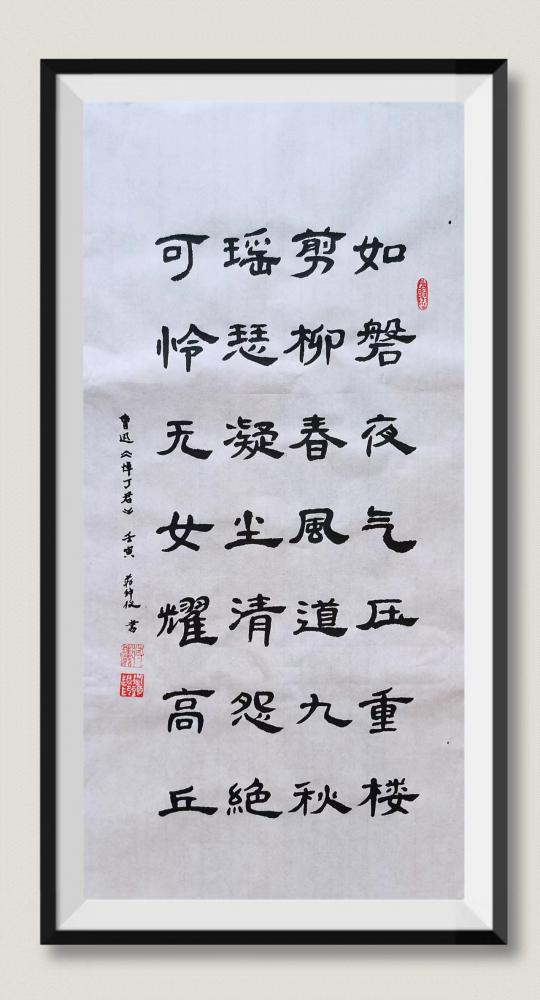 如磐夜气压重楼
剪柳春風道九秋
瑶瑟凝尘清怨絶
可怜无女耀高丘
鲁迅《悼丁君》 壬寅 书